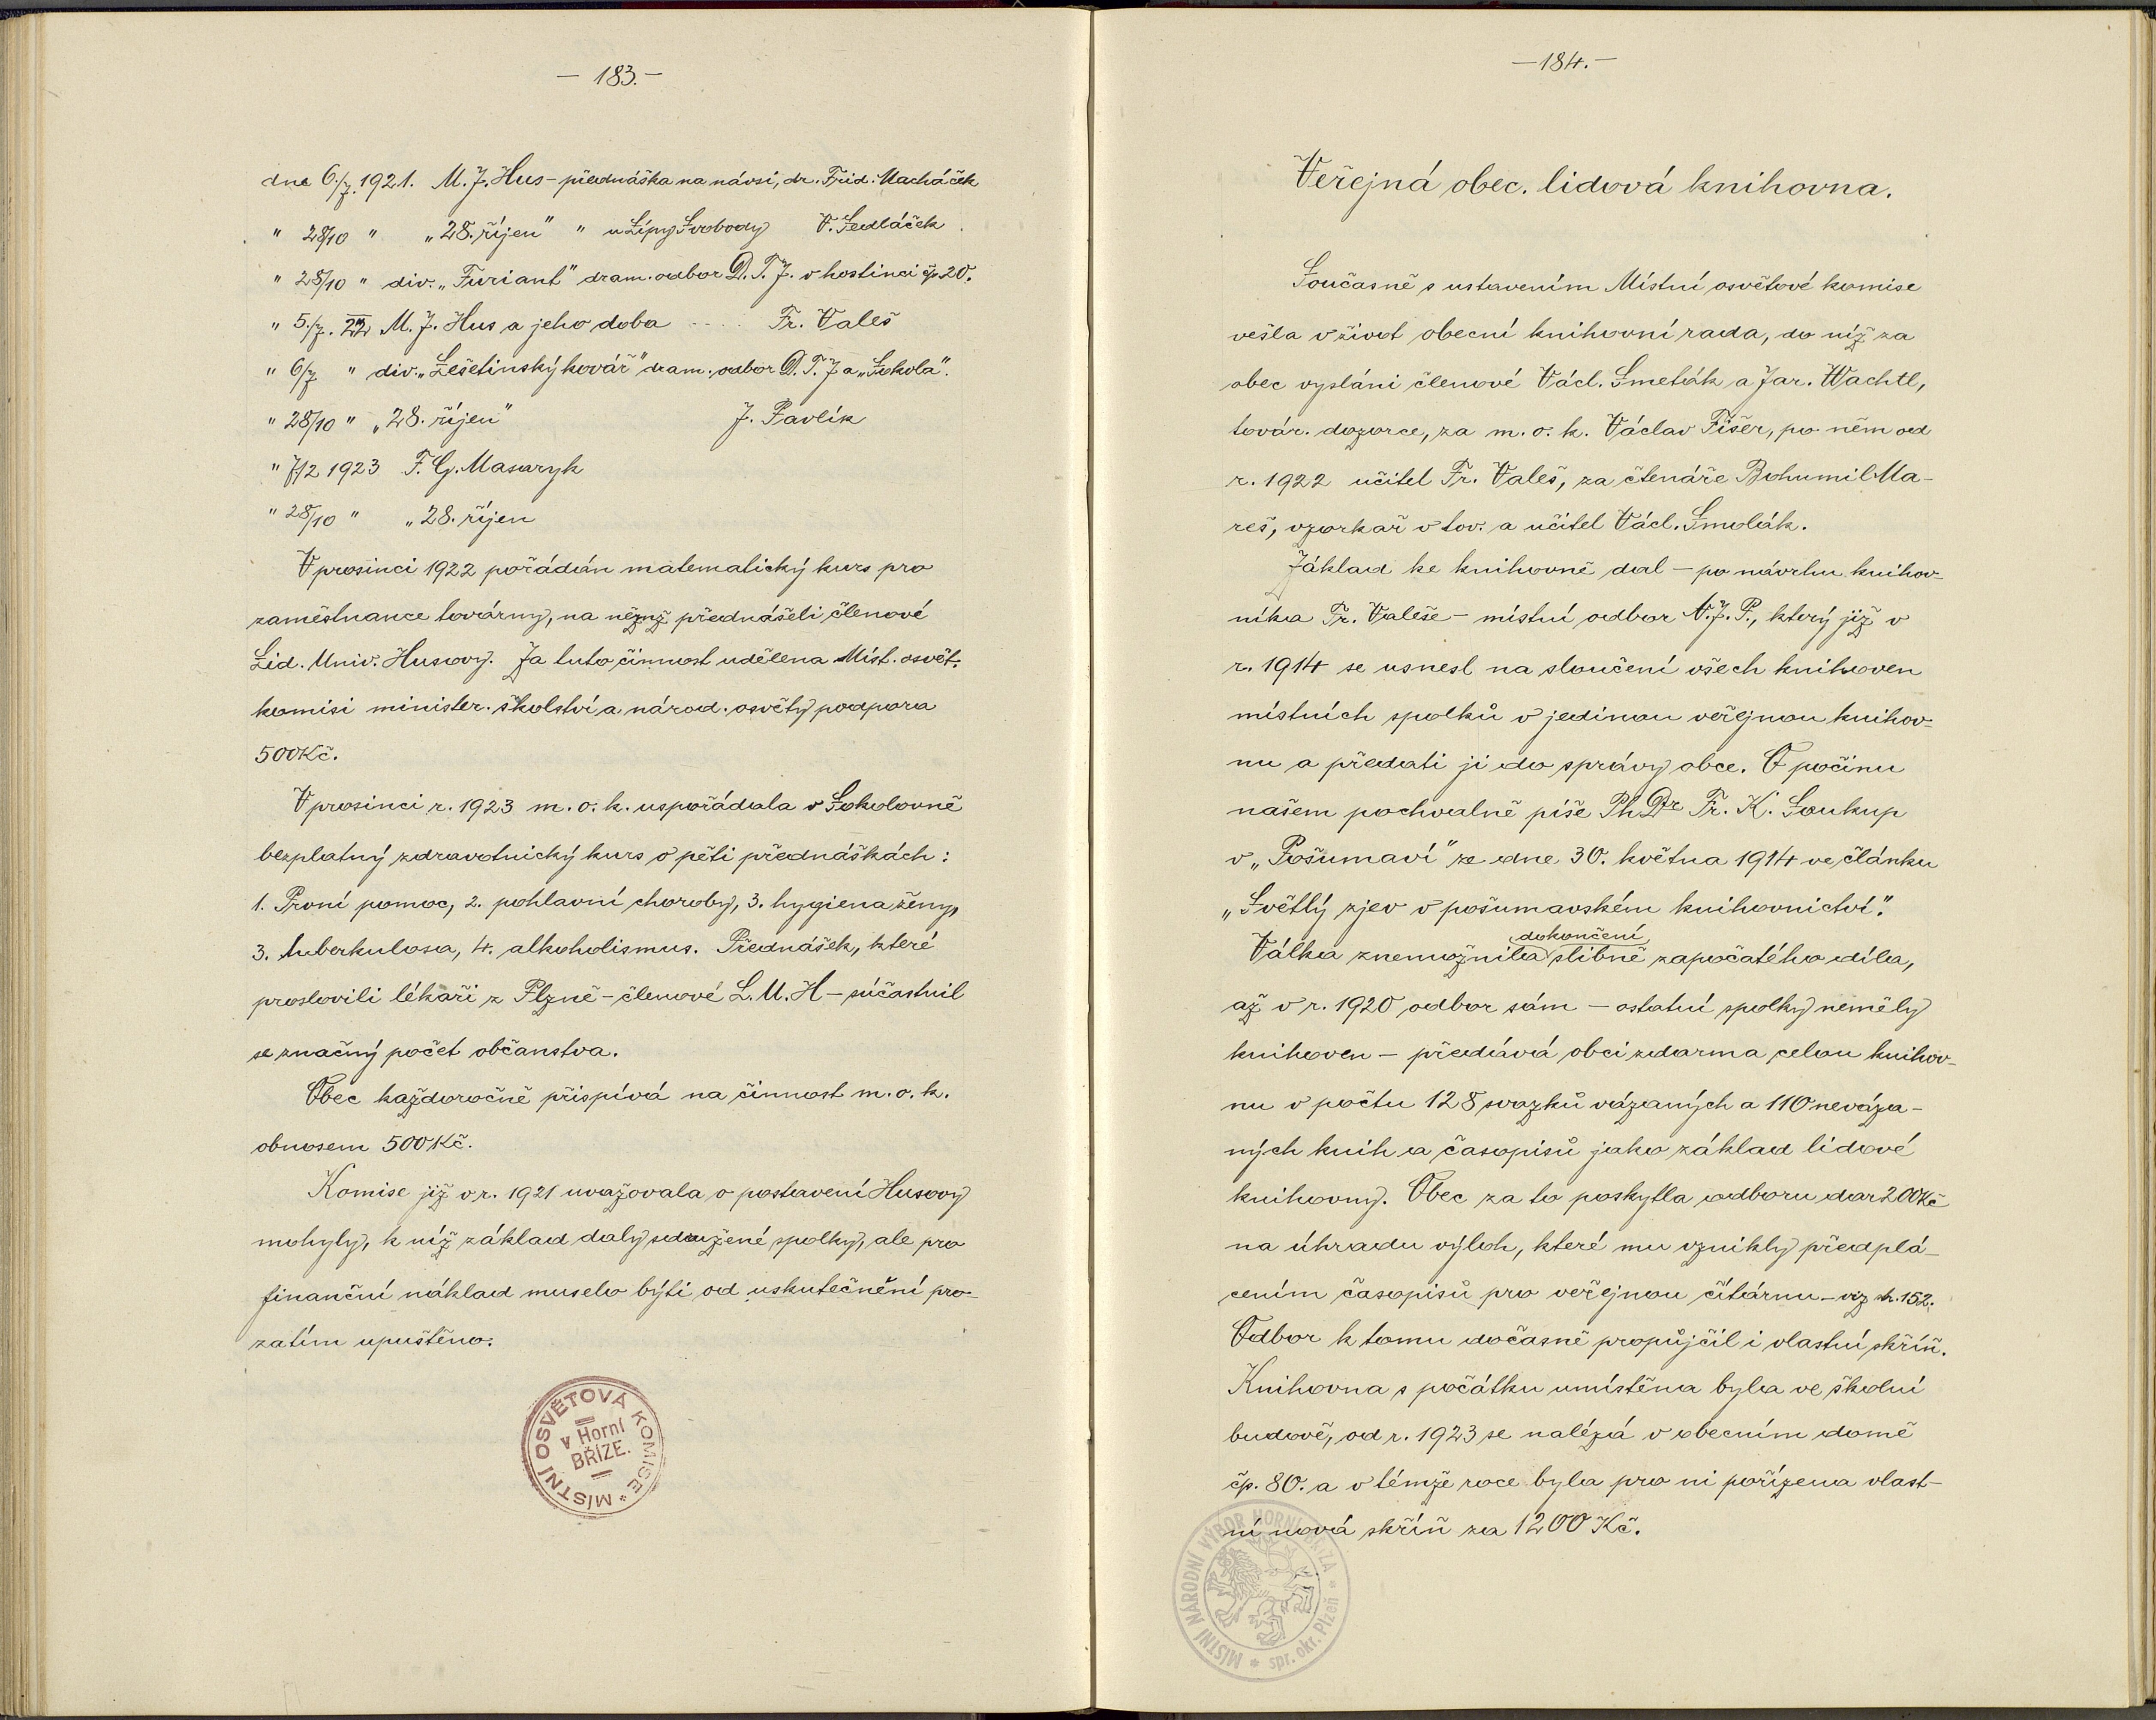 — 183. —
dne 6./7. 1921. M. J. Hus - přednáška na návsi, dr. Frid. Macháček
" 28/10 " „28. říjen" " u Lípy Svobody V. Sedláček
" 28/10 " div. „Furiant" dram. odbor D. T. J. v hostinci čp 20.
" 5./7. 22 M. J. Hus a jeho doba .... Fr. Valeš
" 6/7 " div. „Lešetinský kovář" dram. odbor D. T. J a „Sokola".
" 28/10 " „28. říjen" J. Pavlík
" 7/12 1923 T. G. Masaryk
" 28/10 " „28. říjen
V prosinci 1922 pořádán matematický kurs pro
zaměstnance továrny, na němž přednášeli členové
Lid. Univ. Husovy. Za tuto činnost udělena Míst. osvět.
komisi minister. školství a národ. osvěty podpora
500 Kč.
V prosinci r. 1923 m. o. k. uspořádala v Sokolovně
bezplatný zdravotnický kurs o pěti přednáškách:
1. První pomoc, 2. pohlavní choroby, 3. hygiena ženy,
3. tuberkulosa, 4. alkoholismus. Přednášek, které
proslovili lékaři z Plzně - členové L. U. H - súčastnil
se značný počet občanstva.
Obec každoročně přispívá na činnost m. o. k.
obnosem 500 Kč.
Komise již v r. 1921 uvažovala o postavení Husovy
mohyly, k níž základ daly sdružené spolky, ale pro
finanční náklad muselo býti od uskutečnění pro-
zatím upuštěno.
MÍSTNÍ OSVĚTOVÁ KOMISE *
v Horní
BŘÍZE.
— 184. —
Veřejná obec. lidová knihovna.
Současně s ustavením Místní osvětové komise
vešla v život obecní knihovní rada, do níž za
obec vysláni členové Václ. Smeták a Jar. Wachtl,
továr. dozorce, za m. o. k. Václav Fišer, po něm od
r. 1922 učitel Fr. Valeš, za čtenáře Bohumil Ma-
reš, vzorkař v tov. a učitel Václ. Smolák.
Základ ke knihovně dal - po návrhu knihov-
níka Fr. Valeše - místní odbor N. J. P., který již v
r. 1914 se usnesl na sloučení všech knihoven
místních spolků v jedinou veřejnou knihov-
nu a předati ji do správy obce. O počinu
našem pochvalně píše Ph Dr Fr. K. Soukup
v „Pošumaví" ze dne 30. května 1914 ve článku
„Světlý zjev v pošumavském knihovnictví".
dokončení
Válka znemožnila slibně započatého díla,
až v r. 1920 odbor sám - ostatní spolky neměly
knihoven - předává obci zdarma celou knihov-
nu v počtu 128 svazků vázaných a 110 neváza-
ných knih a časopisů jako základ lidové
knihovny. Obec za to poskytla odboru dar 200 Kč
na úhradu výloh, které mu vznikly předplá-
cením časopisů pro veřejnou čítárnu - viz str. 152.
Odbor k tomu dočasně propůjčil i vlastní skříň.
Knihovna s počátku umístěna byla ve školní
budově, od r. 1923 se nalézá v obecním domě
čp. 80. a v témže roce byla pro ni pořízena vlast-
ní nová skříň za 1200 Kč.
MÍSTNÍ NÁRODNÍ VÝBOR HORNÍ BŘÍZA
* spr. okr. Plzeň *